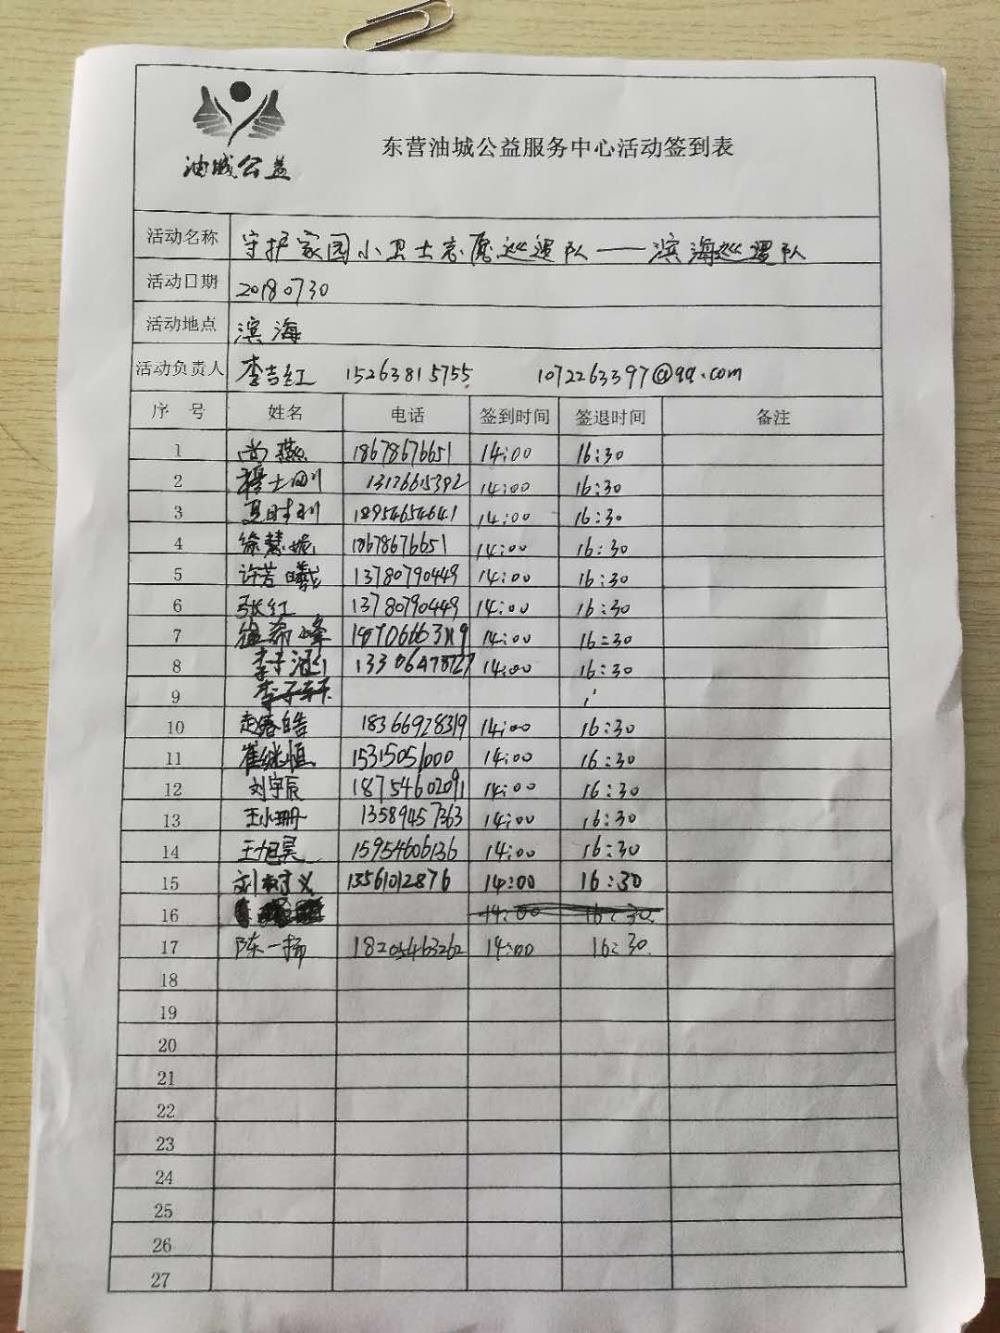 油城公益
东营油城公益服务中心活动签到表
活动名称 守护家园小卫士志愿巡逻队——滨海巡逻队
活动日期 20180730
活动地点 滨海
活动负责人 李吉红 15263815755 1072263397@qq.com
序 号 姓名 电话 签到时间 签退时间 备注
1 尚燕 18678676651 14:00 16:30
2 穆士刚 13126615392 14:00 16:30
3 夏时利 18954654641 14:00 16:30
4 徐慧妮 18678676651 14:00 16:30
5 许若曦 13780790449 14:00 16:30
6 张红 13780790449 14:00 16:30
7 14:00 16:30
8 李子涵 14:00 16:30
9 李子轩
10 赵春皓 18366928319 14:00 16:30
11 崔继恒 15315051000 14:00 16:30
12 刘宇辰 18754602091 14:00 16:30
13 王小珊 13589457363 14:00 16:30
14 王旭昊 15954606136 14:00 16:30
15 刘树义 13561012876 14:00 16:30
16 14:00 16:30
17 陈一扬 18205463262 14:00 16:30
18
19
20
21
22
23
24
25
26
27